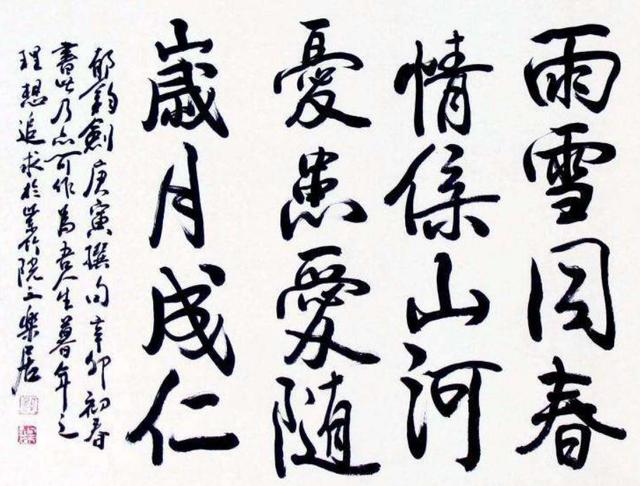 雨雪同春
情係山河
憂患愛隨
歲月成仁
郁鈞劍庚寅撰句辛卯初春
書此乃亦可作為吾人生暮年之
理想追求於紫竹院三樂居